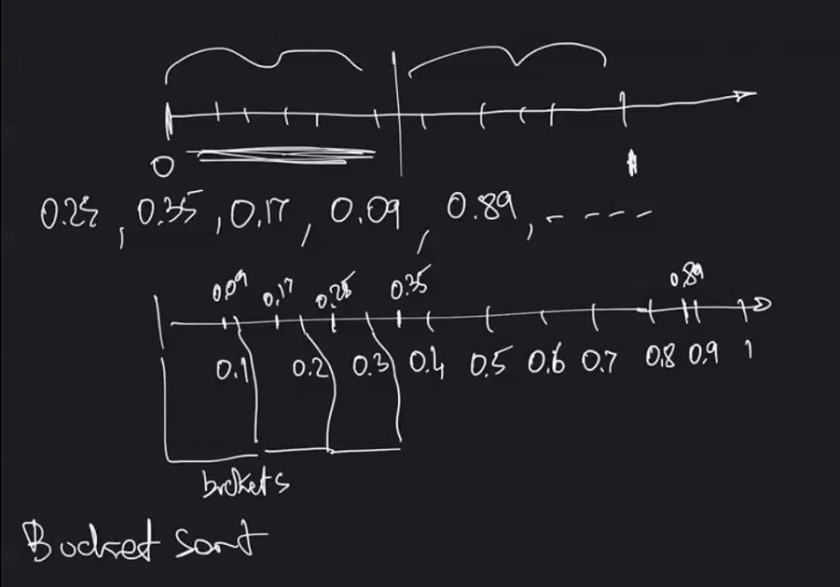 0 1
0.25, 0.35, 0.17, 0.09, 0.89, - - - -
0.09 0.17 0.25 0.35 0.89
0.1 0.2 0.3 0.4 0.5 0.6 0.7 0.8 0.9 1
buckets
Bucket sort